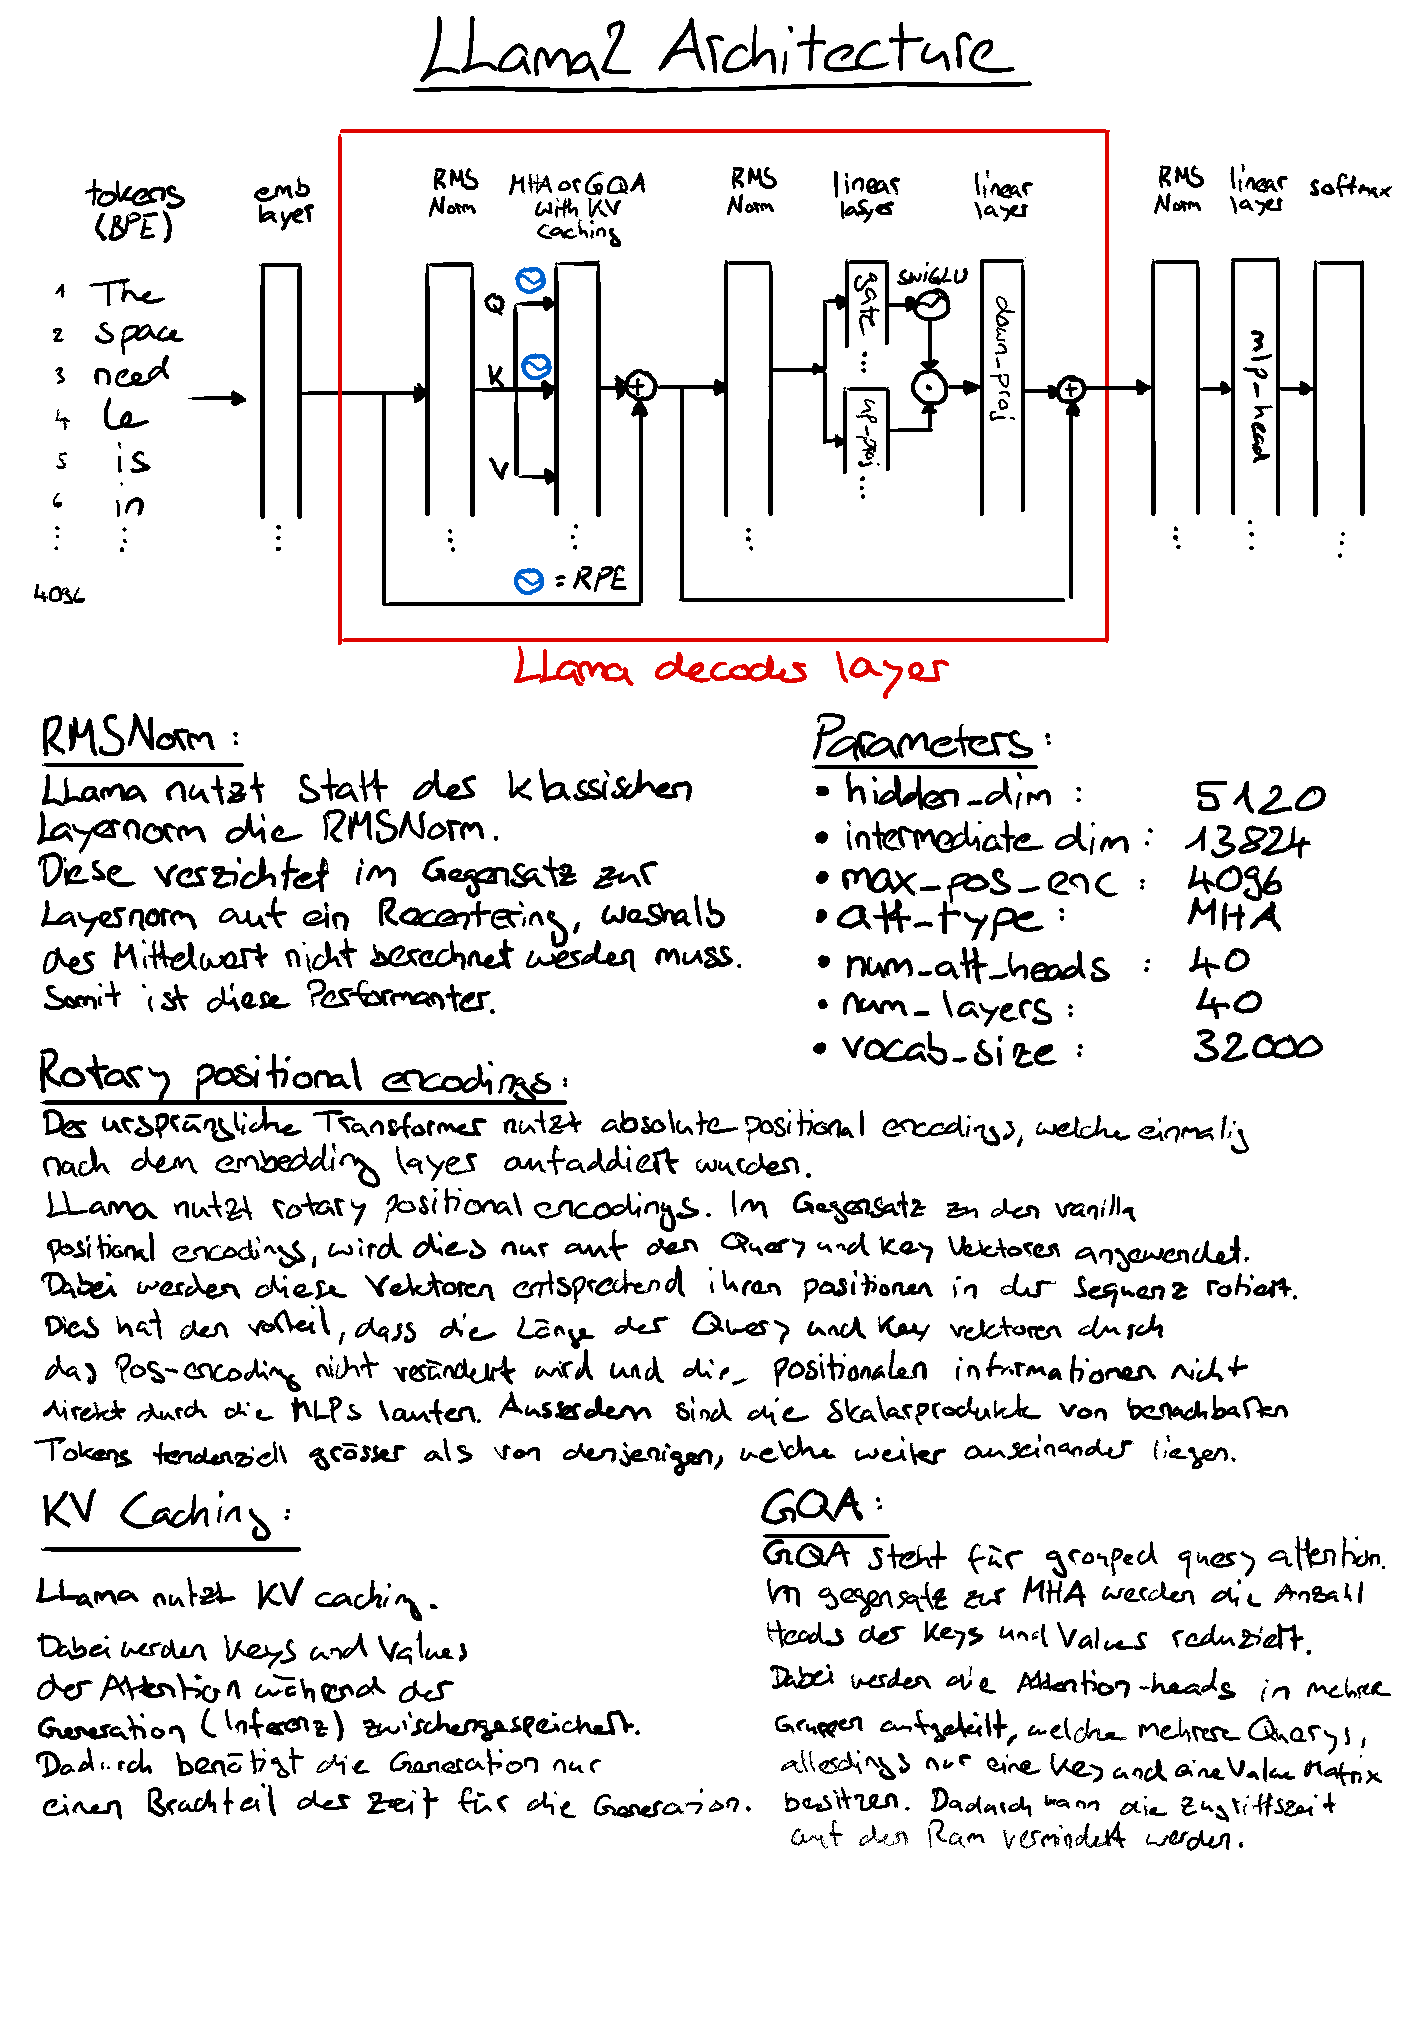 LLama2 Architecture
tokens
(BPE)
emb
layer
RMS
Norm
MHA or GQA
with KV
caching
RMS
Norm
linear
layer
linear
layer
RMS
Norm
linear
layer
softmax
1 The
2 space
3 need
4 le
5 is
6 in
4096
Q
K
V
gate
up-proj
SwiGLU
down_proj
mlp-head
= RPE
LLama decoder layer
RMSNorm:
LLama nutzt statt der klassischen
Layernorm die RMSNorm.
Diese verzichtet im Gegensatz zur
Layernorm auf ein Recentering, weshalb
der Mittelwert nicht berechnet werden muss.
Somit ist diese Performanter.
Parameters:
• hidden_dim : 5120
• intermediate dim : 13824
• max_pos_enc : 4096
• att_type : MHA
• num_att_heads : 40
• num_layers : 40
• vocab_size : 32000
Rotary positional encodings:
Der ursprüngliche Transformer nutzt absolute positional encodings, welche einmalig
nach dem embedding layer aufaddiert wurden.
LLama nutzt rotary positional encodings. Im Gegensatz zu den vanilla
positional encodings, wird dies nur auf den Query und Key Vektoren angewendet.
Dabei werden diese Vektoren entsprechend ihren positionen in der Sequenz rotiert.
Dies hat den vorteil, dass die Länge der Query und Key vektoren durch
das Pos-encoding nicht verändert wird und die positionalen informationen nicht
direkt durch die MLPs laufen. Ausserdem sind die Skalarprodukte von benachbarten
Tokens tendenziell grösser als von denjenigen, welche weiter auseinander liegen.
KV Caching:
LLama nutzt KV caching.
Dabei werden Keys und Values
der Attention während der
Generation (Inferenz) zwischengespeichert.
Dadurch benötigt die Generation nur
einen Bruchteil der Zeit für die Generation.
GQA:
GQA steht für grouped query attention.
Im gegensatz zur MHA werden die Anzahl
Heads der Keys und Values reduziert.
Dabei werden die Attention-heads in mehrere
Gruppen aufgeteilt, welche mehrere Querys,
allerdings nur eine Key und eine Value Matrix
besitzen. Dadurch kann die Zugriffszeit
auf den Ram vermindert werden.